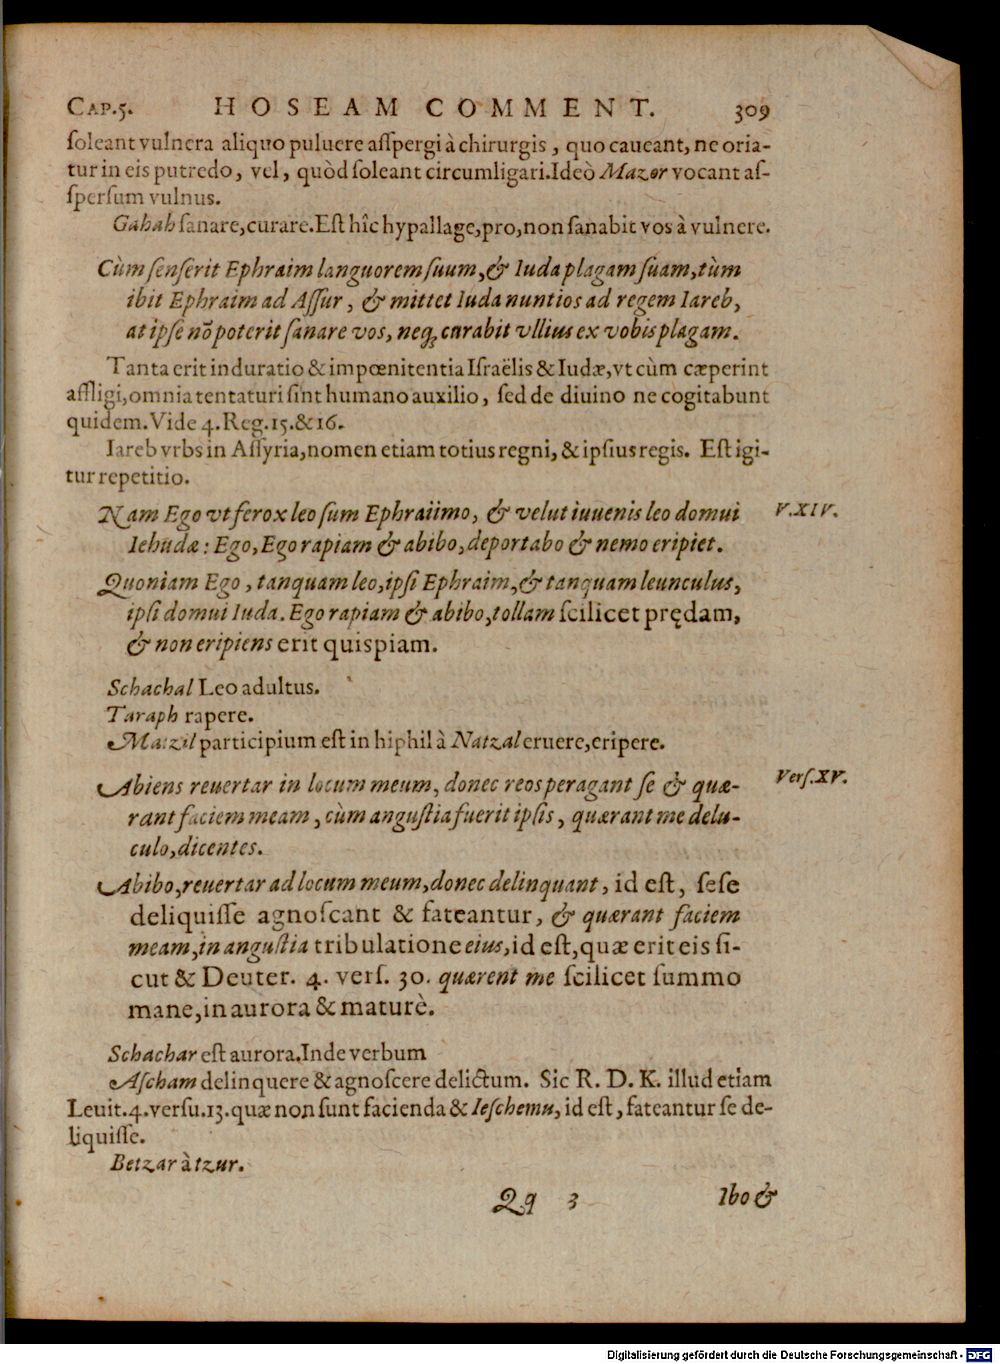 CAP.5. HOSEAM COMMENT. 309
ſoleant vulnera aliquo puluere aſſpergi à chirurgis, quo caueant, ne oria-
tur in eis putredo, vel, quòd ſoleant circumligari. Ideò Mazor vocant aſ-
ſperſum vulnus.
Gahah ſanare, curare. Eſt hîc hypallage, pro, non ſanabit vos à vulnere.
Cùm ſenſerit Ephraim languorem ſuum, & Iuda plagam ſuam, tùm
ibit Ephraim ad Aſſur, & mittet Iuda nuntios ad regem Iareb,
at ipſe nõ poterit ſanare vos, neq; curabit vllius ex vobis plagam.
Tanta erit induratio & impœnitentia Iſraëlis & Iudæ, vt cùm cæperint
affligi, omnia tentaturi ſint humano auxilio, ſed de diuino ne cogitabunt
quidem. Vide 4. Reg. 15. & 16.
Iareb vrbs in Aſſyria, nomen etiam totius regni, & ipſius regis. Eſt igi-
tur repetitio.
Nam Ego vt ferox leo ſum Ephraiimo, & velut iuuenis leo domui V.XIV.
Iehudæ: Ego, Ego rapiam & abibo, deportabo & nemo eripiet.
Quoniam Ego, tanquam leo, ipſi Ephraim, & tanquam leunculus,
ipſi domui Iuda. Ego rapiam & abibo, tollam ſcilicet prędam,
& non eripiens erit quispiam.
Schachal Leo adultus.
Taraph rapere.
Matzil participium eſt in hiphil à Natzal eruere, eripere.
Abiens reuertar in locum meum, donec reos peragant ſe & quæ- Verſ.XV.
rant faciem meam, cùm anguſtia fuerit ipſis, quærant me delu-
culo, dicentes.
Abibo, reuertar ad locum meum, donec delinquant, id eſt, ſeſe
deliquiſſe agnoſcant & fateantur, & quærant faciem
meam, in anguſtia tribulatione eius, id eſt, quæ erit eis ſi-
cut & Deuter. 4. verſ. 30. quærent me ſcilicet ſummo
mane, in aurora & maturè.
Schachar eſt aurora. Inde verbum
Aſcham delinquere & agnoſcere delictum. Sic R. D. K. illud etiam
Leuit. 4. verſu. 13. quæ non ſunt facienda & Ieſchemu, id eſt, fateantur ſe de-
liquiſſe.
Betzar à tzur.
Qq 3 Ibo &
Digitalisierung gefördert durch die Deutsche Forschungsgemeinschaft - DFG